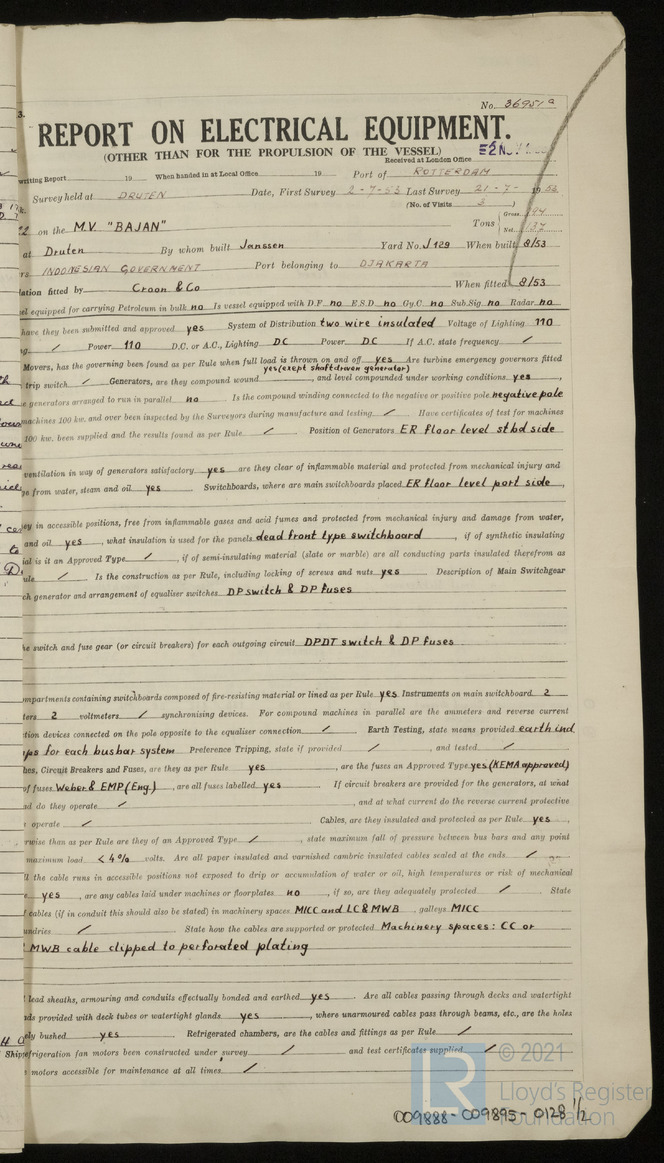 3.
No. 36951a
REPORT ON ELECTRICAL EQUIPMENT.
(OTHER THAN FOR THE PROPULSION OF THE VESSEL)
Received at London Office
writing Report 19 When handed in at Local Office 19 Port of ROTTERDAM
Survey held at DRUTEN Date, First Survey 2-7-53 Last Survey 21-7- 1953
(No. of Visits 3)
on the M.V. "BAJAN" Tons Gross 194 Net 137
at Druten By whom built Janssen Yard No. J 129 When built 8/53
INDONESIAN GOVERNMENT Port belonging to DJAKARTA
ation fitted by Croon & Co When fitted 8/53
sel equipped for carrying Petroleum in bulk no Is vessel equipped with D.F. no E.S.D. no Gy.C. no Sub.Sig. no Radar no
have they been submitted and approved yes System of Distribution two wire insulated Voltage of Lighting 110
g / Power 110 D.C. or A.C., Lighting DC Power DC If A.C. state frequency /
Movers, has the governing been found as per Rule when full load is thrown on and off yes Are turbine emergency governors fitted
yes (exept shaft driven generator)
trip switch / Generators, are they compound wound , and level compounded under working conditions yes ,
e generators arranged to run in parallel no Is the compound winding connected to the negative or positive pole negative pole
machines 100 kw. and over been inspected by the Surveyors during manufacture and testing / Have certificates of test for machines
100 kw. been supplied and the results found as per Rule / Position of Generators ER floor level stbd side
ventilation in way of generators satisfactory yes are they clear of inflammable material and protected from mechanical injury and
ge from water, steam and oil yes Switchboards, where are main switchboards placed ER floor level port side ,
ey in accessible positions, free from inflammable gases and acid fumes and protected from mechanical injury and damage from water,
and oil yes , what insulation is used for the panels dead front type switchboard , if of synthetic insulating
ial is it an Approved Type / , if of semi-insulating material (slate or marble) are all conducting parts insulated therefrom as
ule / Is the construction as per Rule, including locking of screws and nuts yes Description of Main Switchgear
ch generator and arrangement of equaliser switches DP switch & DP fuses
he switch and fuse gear (or circuit breakers) for each outgoing circuit DPDT switch & DP fuses
mpartments containing switchboards composed of fire-resisting material or lined as per Rule yes Instruments on main switchboard 2
ters 2 voltmeters / synchronising devices. For compound machines in parallel are the ammeters and reverse current
tion devices connected on the pole opposite to the equaliser connection / Earth Testing, state means provided earth ind
ps for each busbar system Preference Tripping, state if provided / , and tested /
hes, Circuit Breakers and Fuses, are they as per Rule yes , are the fuses an Approved Type yes (KEMA approved)
of fuses Weber & EMP (Eng.) , are all fuses labelled yes If circuit breakers are provided for the generators, at what
d do they operate / , and at what current do the reverse current protective
operate / Cables, are they insulated and protected as per Rule yes ,
rwise than as per Rule are they of an Approved Type / , state maximum fall of pressure between bus bars and any point
maximum load < 4% volts. Are all paper insulated and varnished cambric insulated cables sealed at the ends /
l the cable runs in accessible positions not exposed to drip or accumulation of water or oil, high temperatures or risk of mechanical
e yes , are any cables laid under machines or floorplates no , if so, are they adequately protected / State
cables (if in conduit this should also be stated) in machinery spaces MICC and LC & MWB , galleys MICC
undries / State how the cables are supported or protected Machinery spaces: CC or
MWB cable clipped to perforated plating
lead sheaths, armouring and conduits effectually bonded and earthed yes Are all cables passing through decks and watertight
ds provided with deck tubes or watertight glands yes , where unarmoured cables pass through beams, etc., are the holes
ely bushed yes Refrigerated chambers, are the cables and fittings as per Rule /
frigeration fan motors been constructed under survey / and test certificates supplied /
motors accessible for maintenance at all times /
© 2021
Lloyd's Register
Foundation
009888-009895-0128 1/2